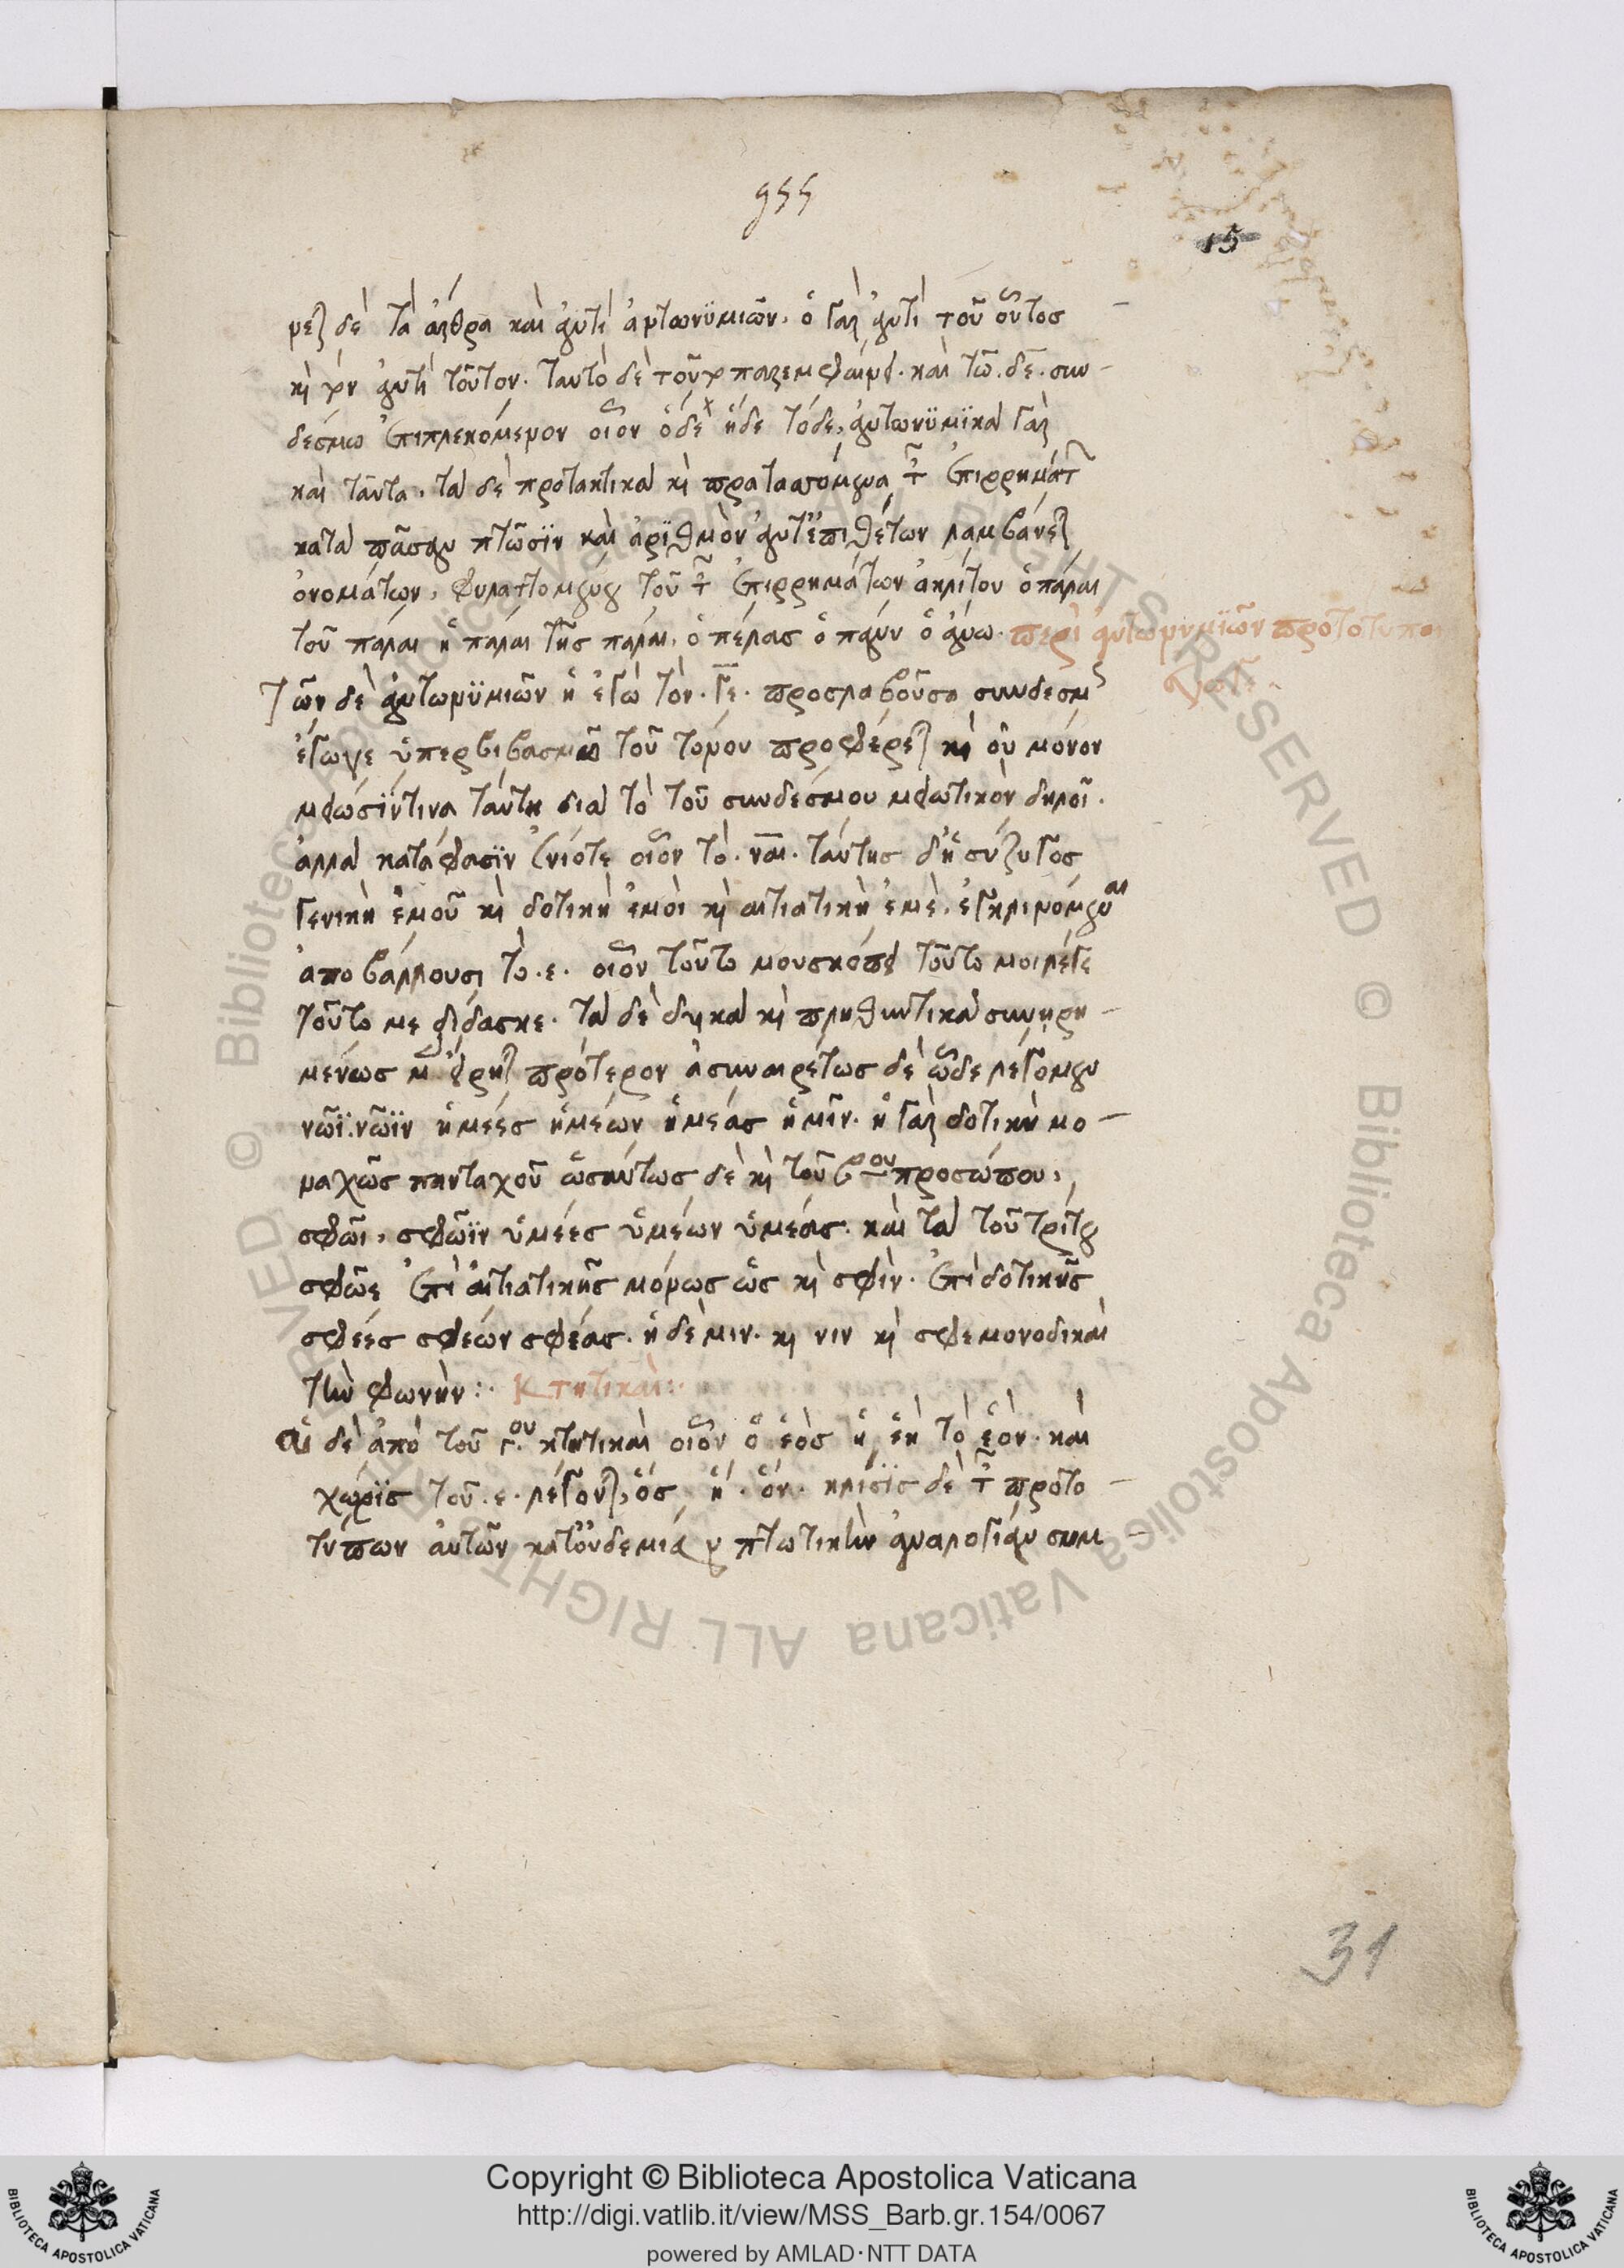 955
15
ρεῖ δὲ τὰ ἄρθρα καὶ ἀντὶ ἀντωνϋμιῶν, ὁ γὰρ ἀντὶ τοῦ οὗτος
κὶ ὃν ἀντὶ τοῦτον. ταυτὸ δὲ τοῦτο καὶ τῶ. δε. συν-
δέσμω ἐπιπλεκόμενον οἷον ὁδὲ ἥδε τόδε, ἀντωνϋμϊκὰ γὰρ
καὶ ταῦτα. τὰ δὲ προτακτικὰ κὶ τῶν ἐπιρρημάτων
κατὰ πᾶσαν πτῶσϊν καὶ ἀρϊθμὸν ἀντ' ἐπιθέτων λαμβάνεται
ὀνομάτων, φυλαττομένου τοῦ τῶν ἐπιρρημάτων ἀκλίτου ὁ πάλαι
τοῦ πάλαι ἡ πάλαι τῆς πάλαι, ὁ πέλας ὁ πάνυ ὁ ἄνω. περὶ ἀντωνυμϊῶν προτοτύπων
Τῶν δὲ ἀντωνϋμιῶν ἡ ἐγὼ τὸν. γε. προσλαβοῦσα συνδεσμ
ἔγωγε ὑπερβιβασμῶ τοῦ τόνου προφέρεται κὶ οὐ μόνον
μείωσίν τινα ταύτη διὰ τὸ τοῦ συνδέσμου μειωτικὸν δηλοῖ.
ἀλλὰ κατάφασϊν ἐνίοτε οἷον τὸ. ναι. ταύτης δ' ἡ σύζυγος
γενικὴ ἐμοῦ κὶ δοτικὴ ἐμοὶ κὶ αἰτιατικὴ ἐμὲ. ἐγκλινόμεναι
ἀποβάλλουσι τὸ. ε. οἷον τοῦτο μου σκόπει τοῦτο μοι λέγε
τοῦτο με δίδασκε. τὰ δὲ δυικὰ κὶ πληθυντικὰ συνηρη-
μένως μὲν εἴρηται πρότερον ἀσυναιρέτως δὲ ὧδε λέγομεν
νῶϊ. νῶϊν ἡμέες ἡμέων ἡμέας ἡμῖν. ἡ γὰρ δοτικὴ μο-
ναχῶς πανταχοῦ ὡσαύτως δὲ κὶ τοῦ β ου προσώπου,
σφῶι, σφῶϊν ὑμέες ὑμέων ὑμέας. καὶ τὰ τοῦ τρίτου
σφῶε ἐπὶ αἰτιατικῆς μόνως ὡς κὶ σφὶν. ἐπὶ δοτικῆς
σφέες σφεών σφέας. ἡ δὲ μιν. κὶ νιν κὶ σφε μονοδικαὶ
τὴν φωνὴν :· Κτητικαὶ:·
αἱ δὲ ἀπὸ τοῦ γ. ου κτητικαὶ οἷον ὁ ἑὸς ἡ ἑὴ τὸ ἑὸν. καὶ
χωρϊς τοῦ. ε. λέγονται, ὅς ἥ. ὅν. κλίσϊς δὲ τῶν πρωτο-
τύπων αὐτῶν κατ' οὐδεμίαν πτωτικὴν ἀναλογίαν συμ-
31
Copyright © Biblioteca Apostolica Vaticana
http://digi.vatlib.it/view/MSS_Barb.gr.154/0067
powered by AMLAD·NTT DATA